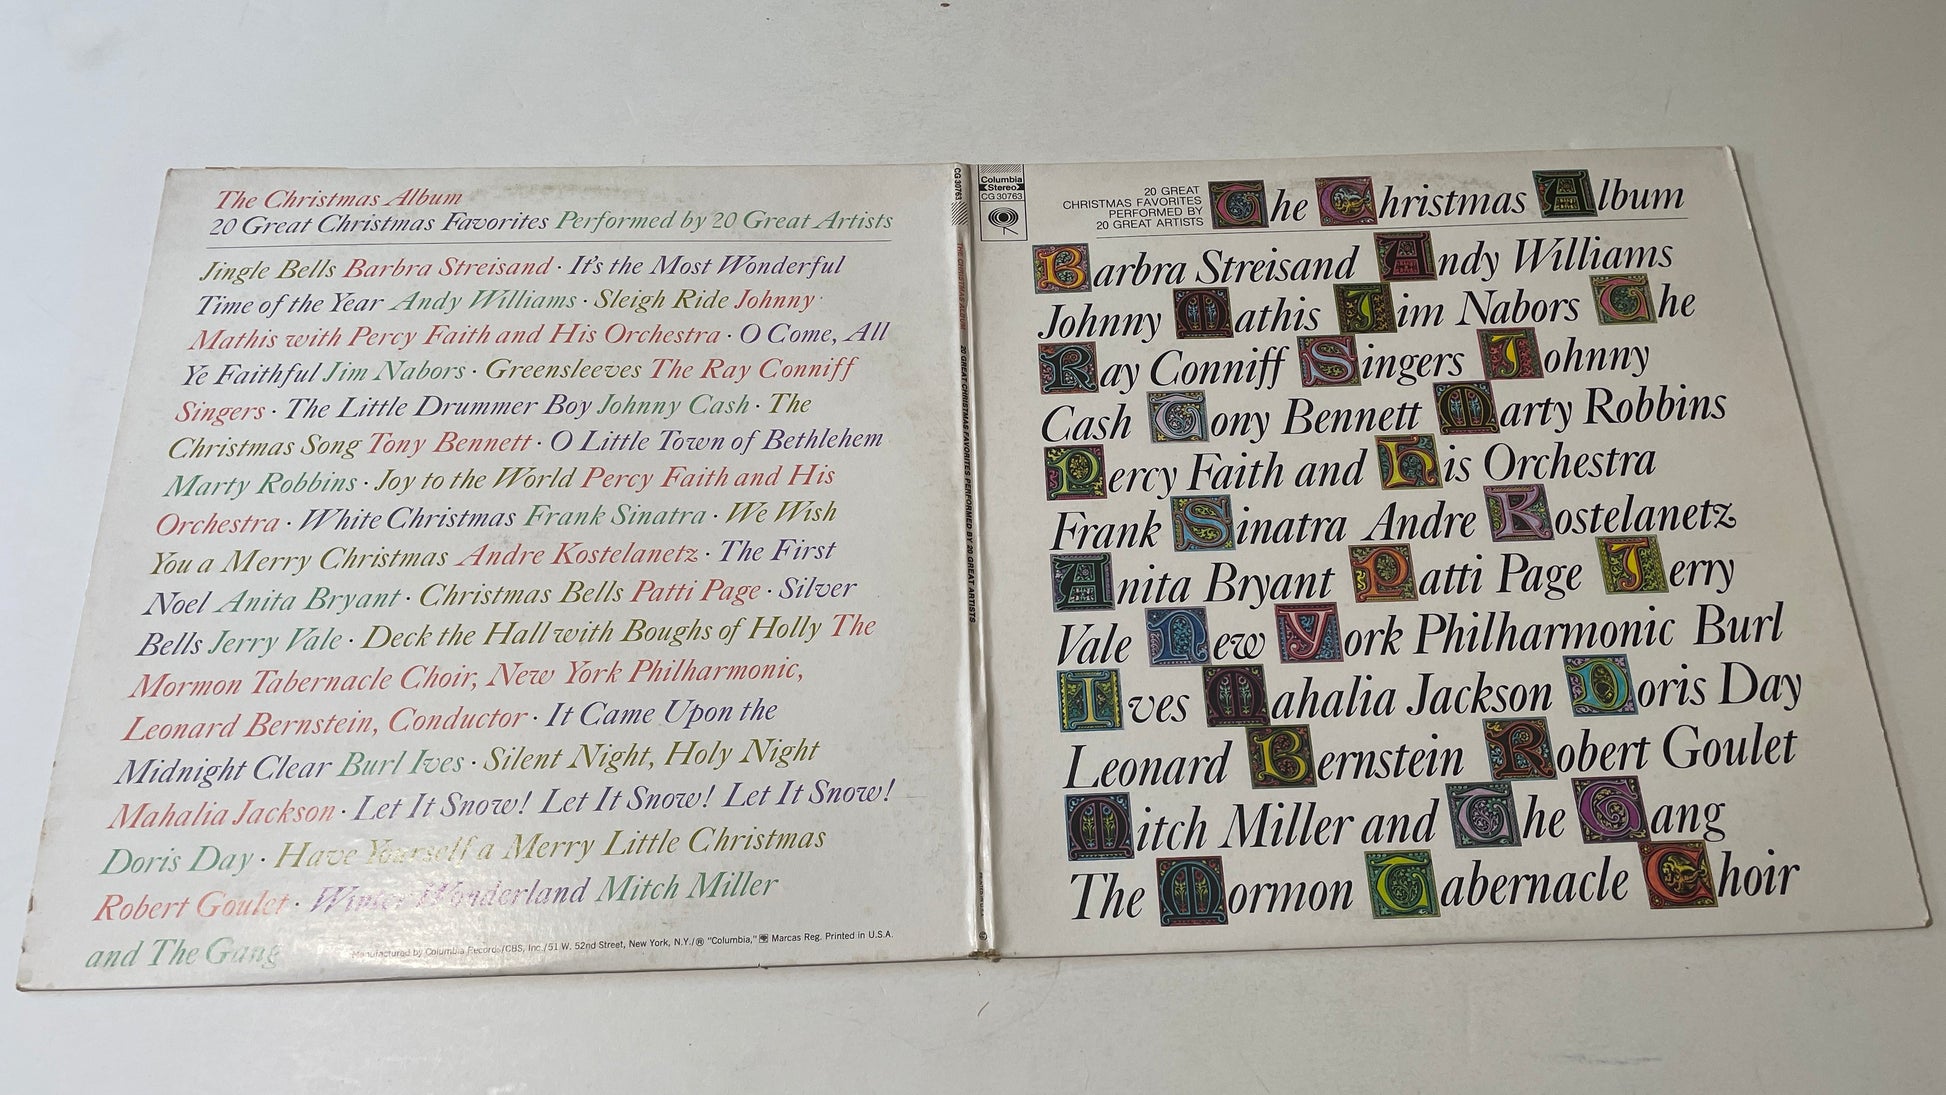 The Christmas Album
20 Great Christmas Favorites Performed by 20 Great Artists
Jingle Bells Barbra Streisand · It's the Most Wonderful
Time of the Year Andy Williams · Sleigh Ride Johnny
Mathis with Percy Faith and His Orchestra · O Come, All
Ye Faithful Jim Nabors · Greensleeves The Ray Conniff
Singers · The Little Drummer Boy Johnny Cash · The
Christmas Song Tony Bennett · O Little Town of Bethlehem
Marty Robbins · Joy to the World Percy Faith and His
Orchestra · White Christmas Frank Sinatra · We Wish
You a Merry Christmas Andre Kostelanetz · The First
Noel Anita Bryant · Christmas Bells Patti Page · Silver
Bells Jerry Vale · Deck the Hall with Boughs of Holly The
Mormon Tabernacle Choir, New York Philharmonic,
Leonard Bernstein, Conductor · It Came Upon the
Midnight Clear Burl Ives · Silent Night, Holy Night
Mahalia Jackson · Let It Snow! Let It Snow! Let It Snow!
Doris Day · Have Yourself a Merry Little Christmas
Robert Goulet · Winter Wonderland Mitch Miller
and The Gang
Manufactured by Columbia Records/CBS, Inc./51 W. 52nd Street, New York, N.Y./® "Columbia," Marcas Reg. Printed in U.S.A.
CG 30763
THE CHRISTMAS ALBUM 20 GREAT CHRISTMAS FAVORITES PERFORMED BY 20 GREAT ARTISTS
Columbia
Stereo
CG 30763
20 GREAT
CHRISTMAS FAVORITES
PERFORMED BY
20 GREAT ARTISTS
The Christmas Album
Barbra Streisand Andy Williams
Johnny Mathis Jim Nabors The
Ray Conniff Singers Johnny
Cash Tony Bennett Marty Robbins
Percy Faith and His Orchestra
Frank Sinatra Andre Kostelanetz
Anita Bryant Patti Page Jerry
Vale New York Philharmonic Burl
Ives Mahalia Jackson Doris Day
Leonard Bernstein Robert Goulet
Mitch Miller and The Gang
The Mormon Tabernacle Choir